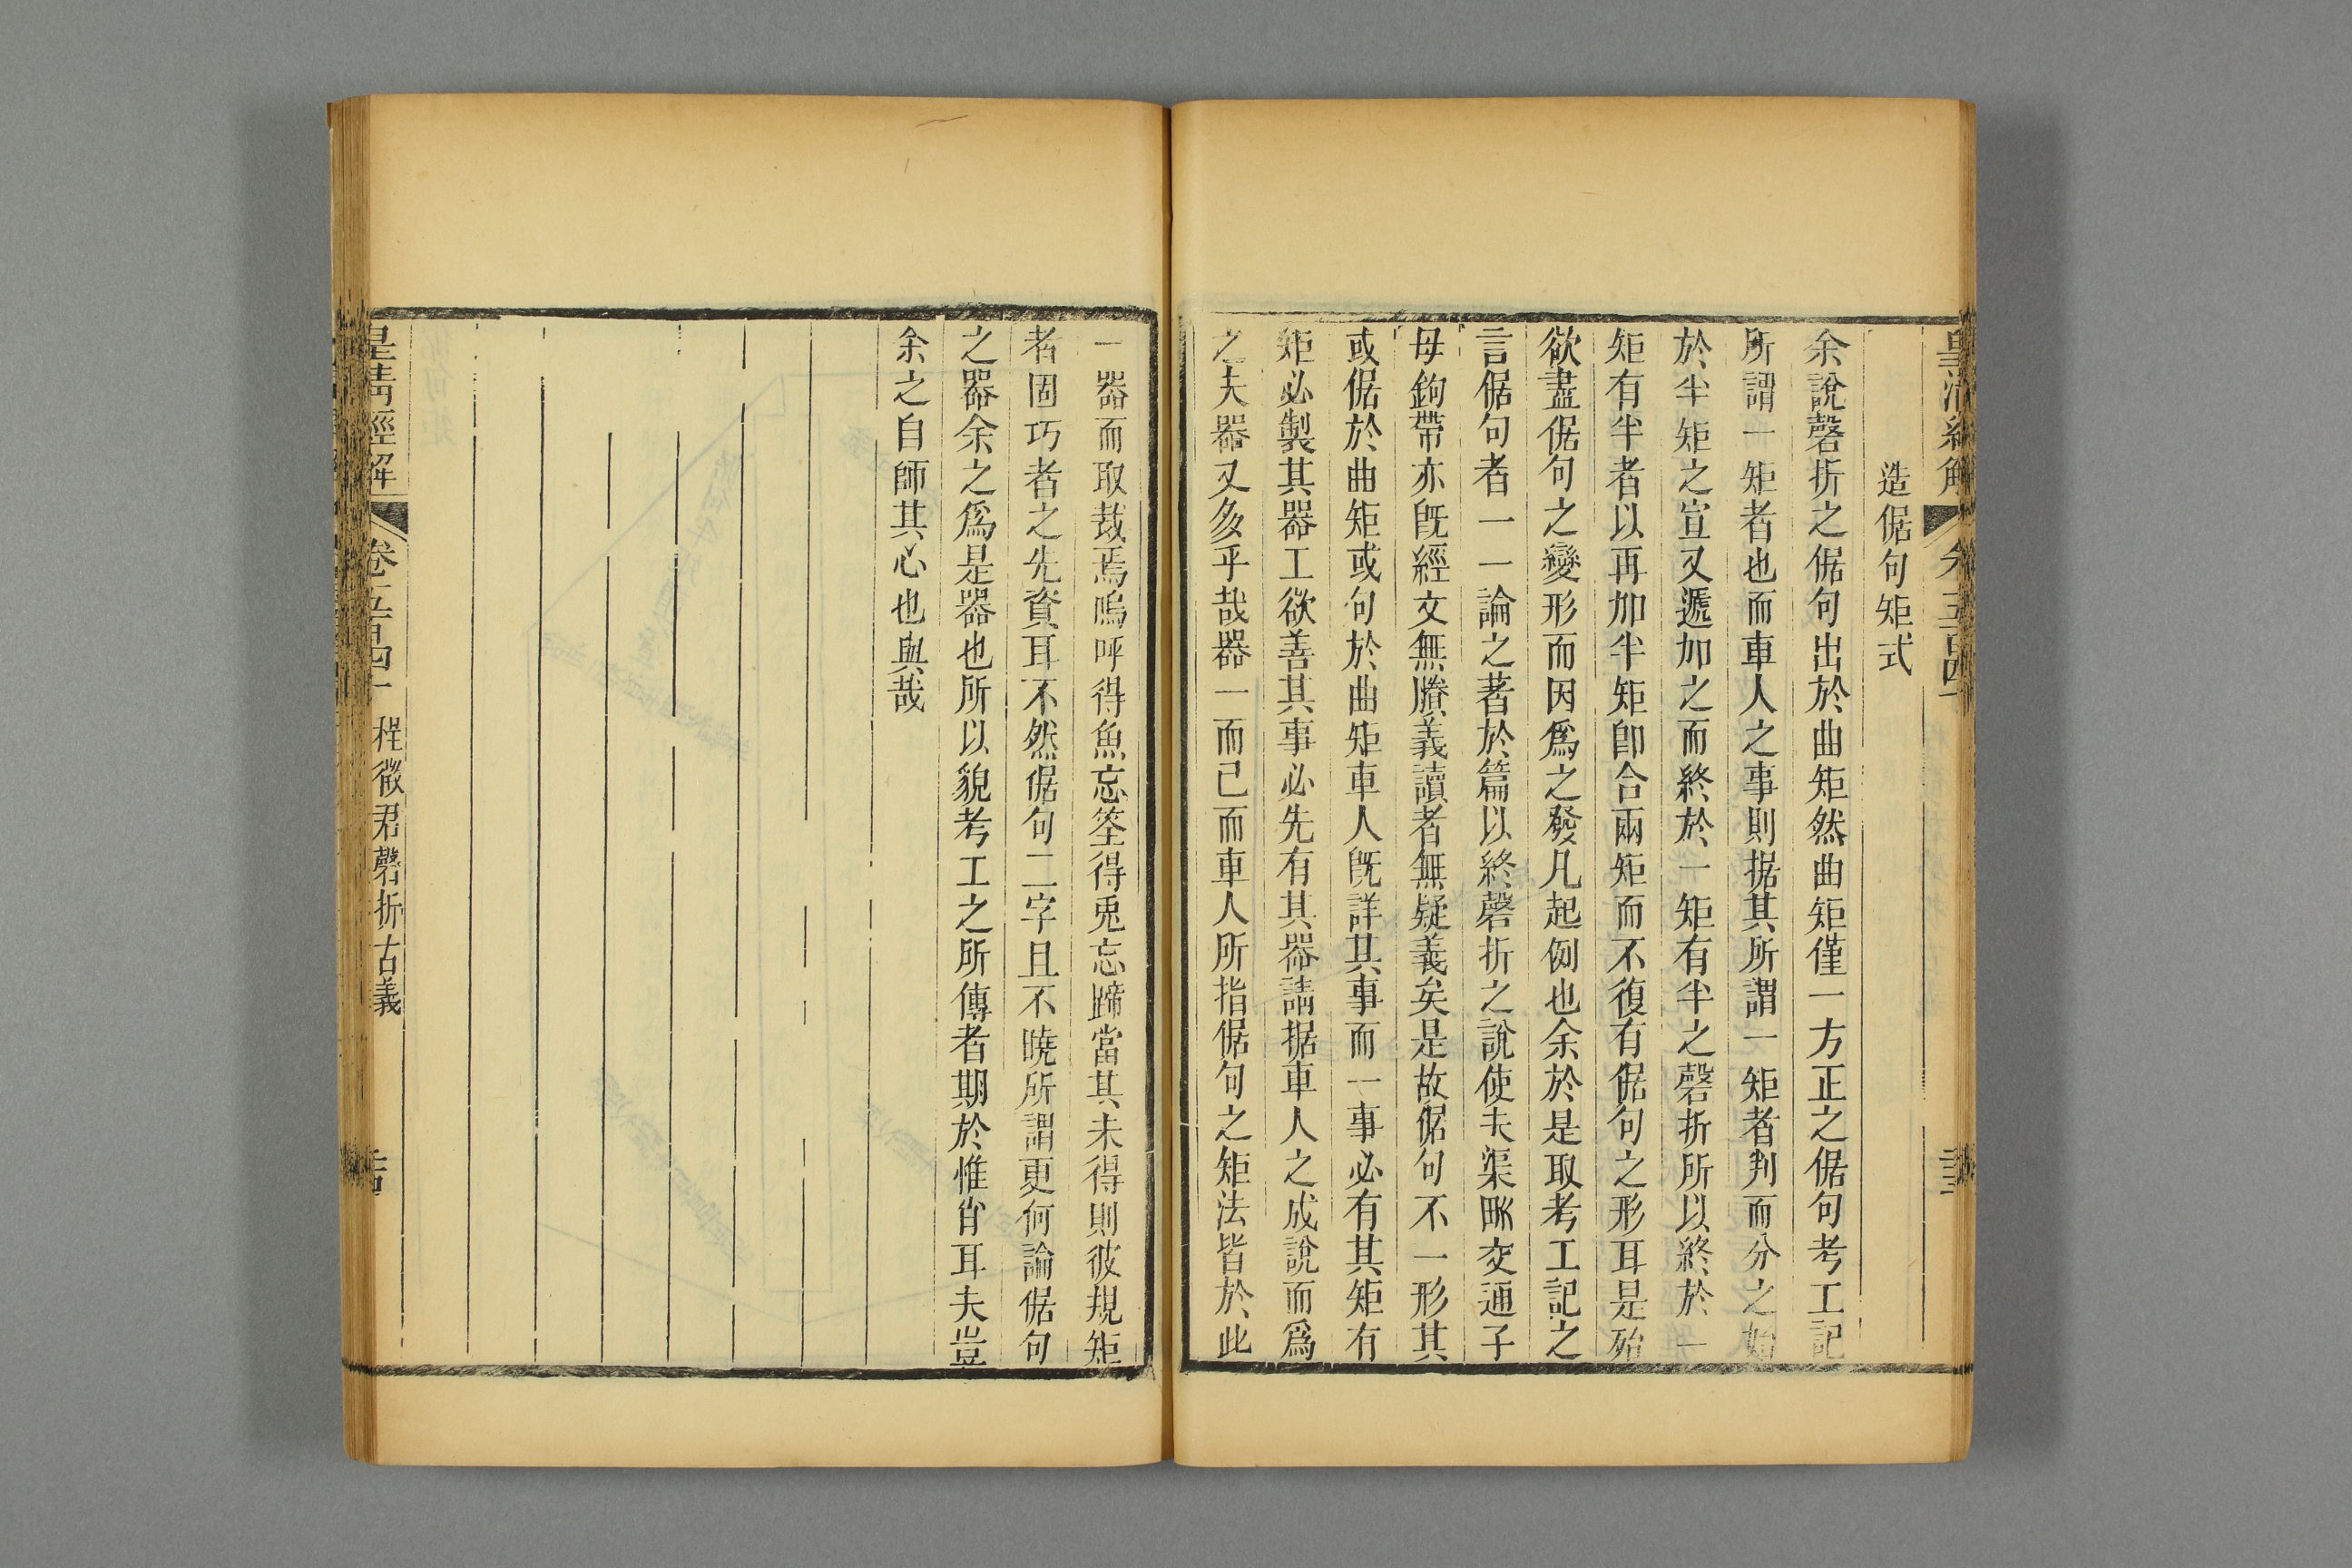 造倨句矩式
余說磬折之倨句出於曲矩然曲矩僅一方正之倨句考工記
所謂一矩者也而車人之事則据其所謂一矩者判而分之始
於半矩之宣又遞加之而終於一矩有半之磬折所以終於一
矩有半者以再加半矩卽合兩矩而不復有倨句之形耳是殆
欲盡倨句之變形而因爲之發凡起例也余於是取考工記之
言倨句者一一論之著於篇以終磬折之說使夫渠畎交通子
母鉤帶亦旣經文無賸義讀者無疑義矣是故倨句不一形其
或倨於曲矩或句於曲矩車人旣詳其事而一事必有其矩有
矩必製其器工欲善其事必先有其器請据車人之成說而爲
之夫器又多乎哉器一而已而車人所指倨句之矩法皆於此
一器而取裁焉嗚呼得魚忘筌得兎忘蹄當其未得則彼規矩
者固巧者之先資耳不然倨句二字且不曉所謂更何論倨句
之器余之爲是器也所以貌考工之所傳者期於惟肖耳夫豈
余之自師其心也與哉
皇淸經解 卷五百四十一 程徵君磬折古義